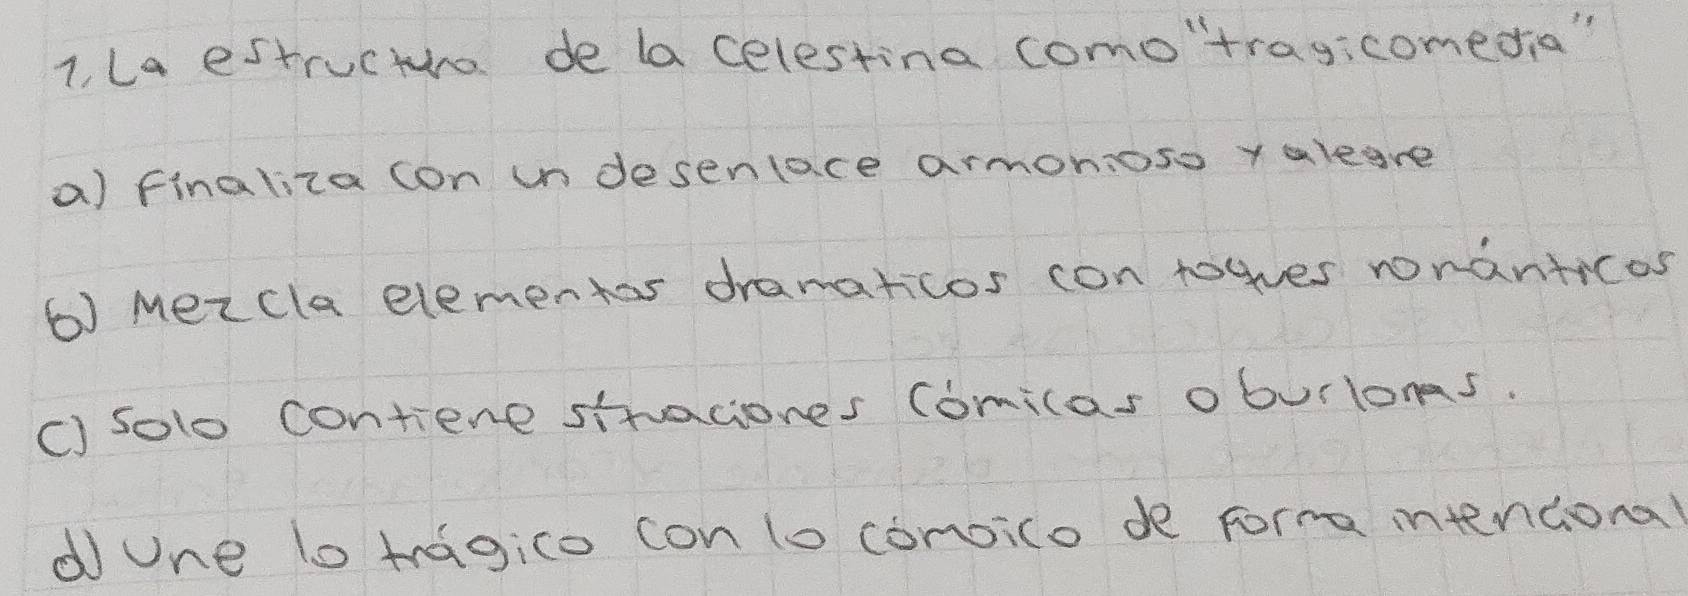 1. La estructura de la celestina como "tragicomedia"
a) Finaliza con un desenlace armonioso y alegre
b) Mezcla elementos dramaticos con toques románticos
c) Solo contiene situaciones cómicas o burlonas.
d) Une lo trágico con lo cómoico de forma intencional